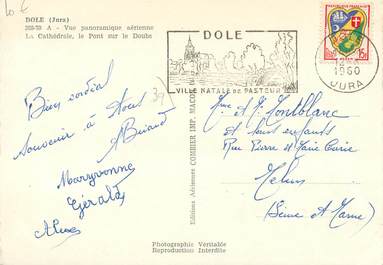 10 €
DOLE (Jura)
A - Vue panoramique aérienne
La Cathédrale, le Pont sur le Doubs
DOLE
VILLE NATALE DE PASTEUR
1960
JURA
Bien cordial
souvenir à tous
Maryvonne
Gérald
Editions Aériennes COMBIER IMP. MACON
Mme et M. Montblanc
et leurs enfants
Rue Pierre et Marie Curie
Melun
(Seine et Marne)
Photographie Véritable
Reproduction Interdite